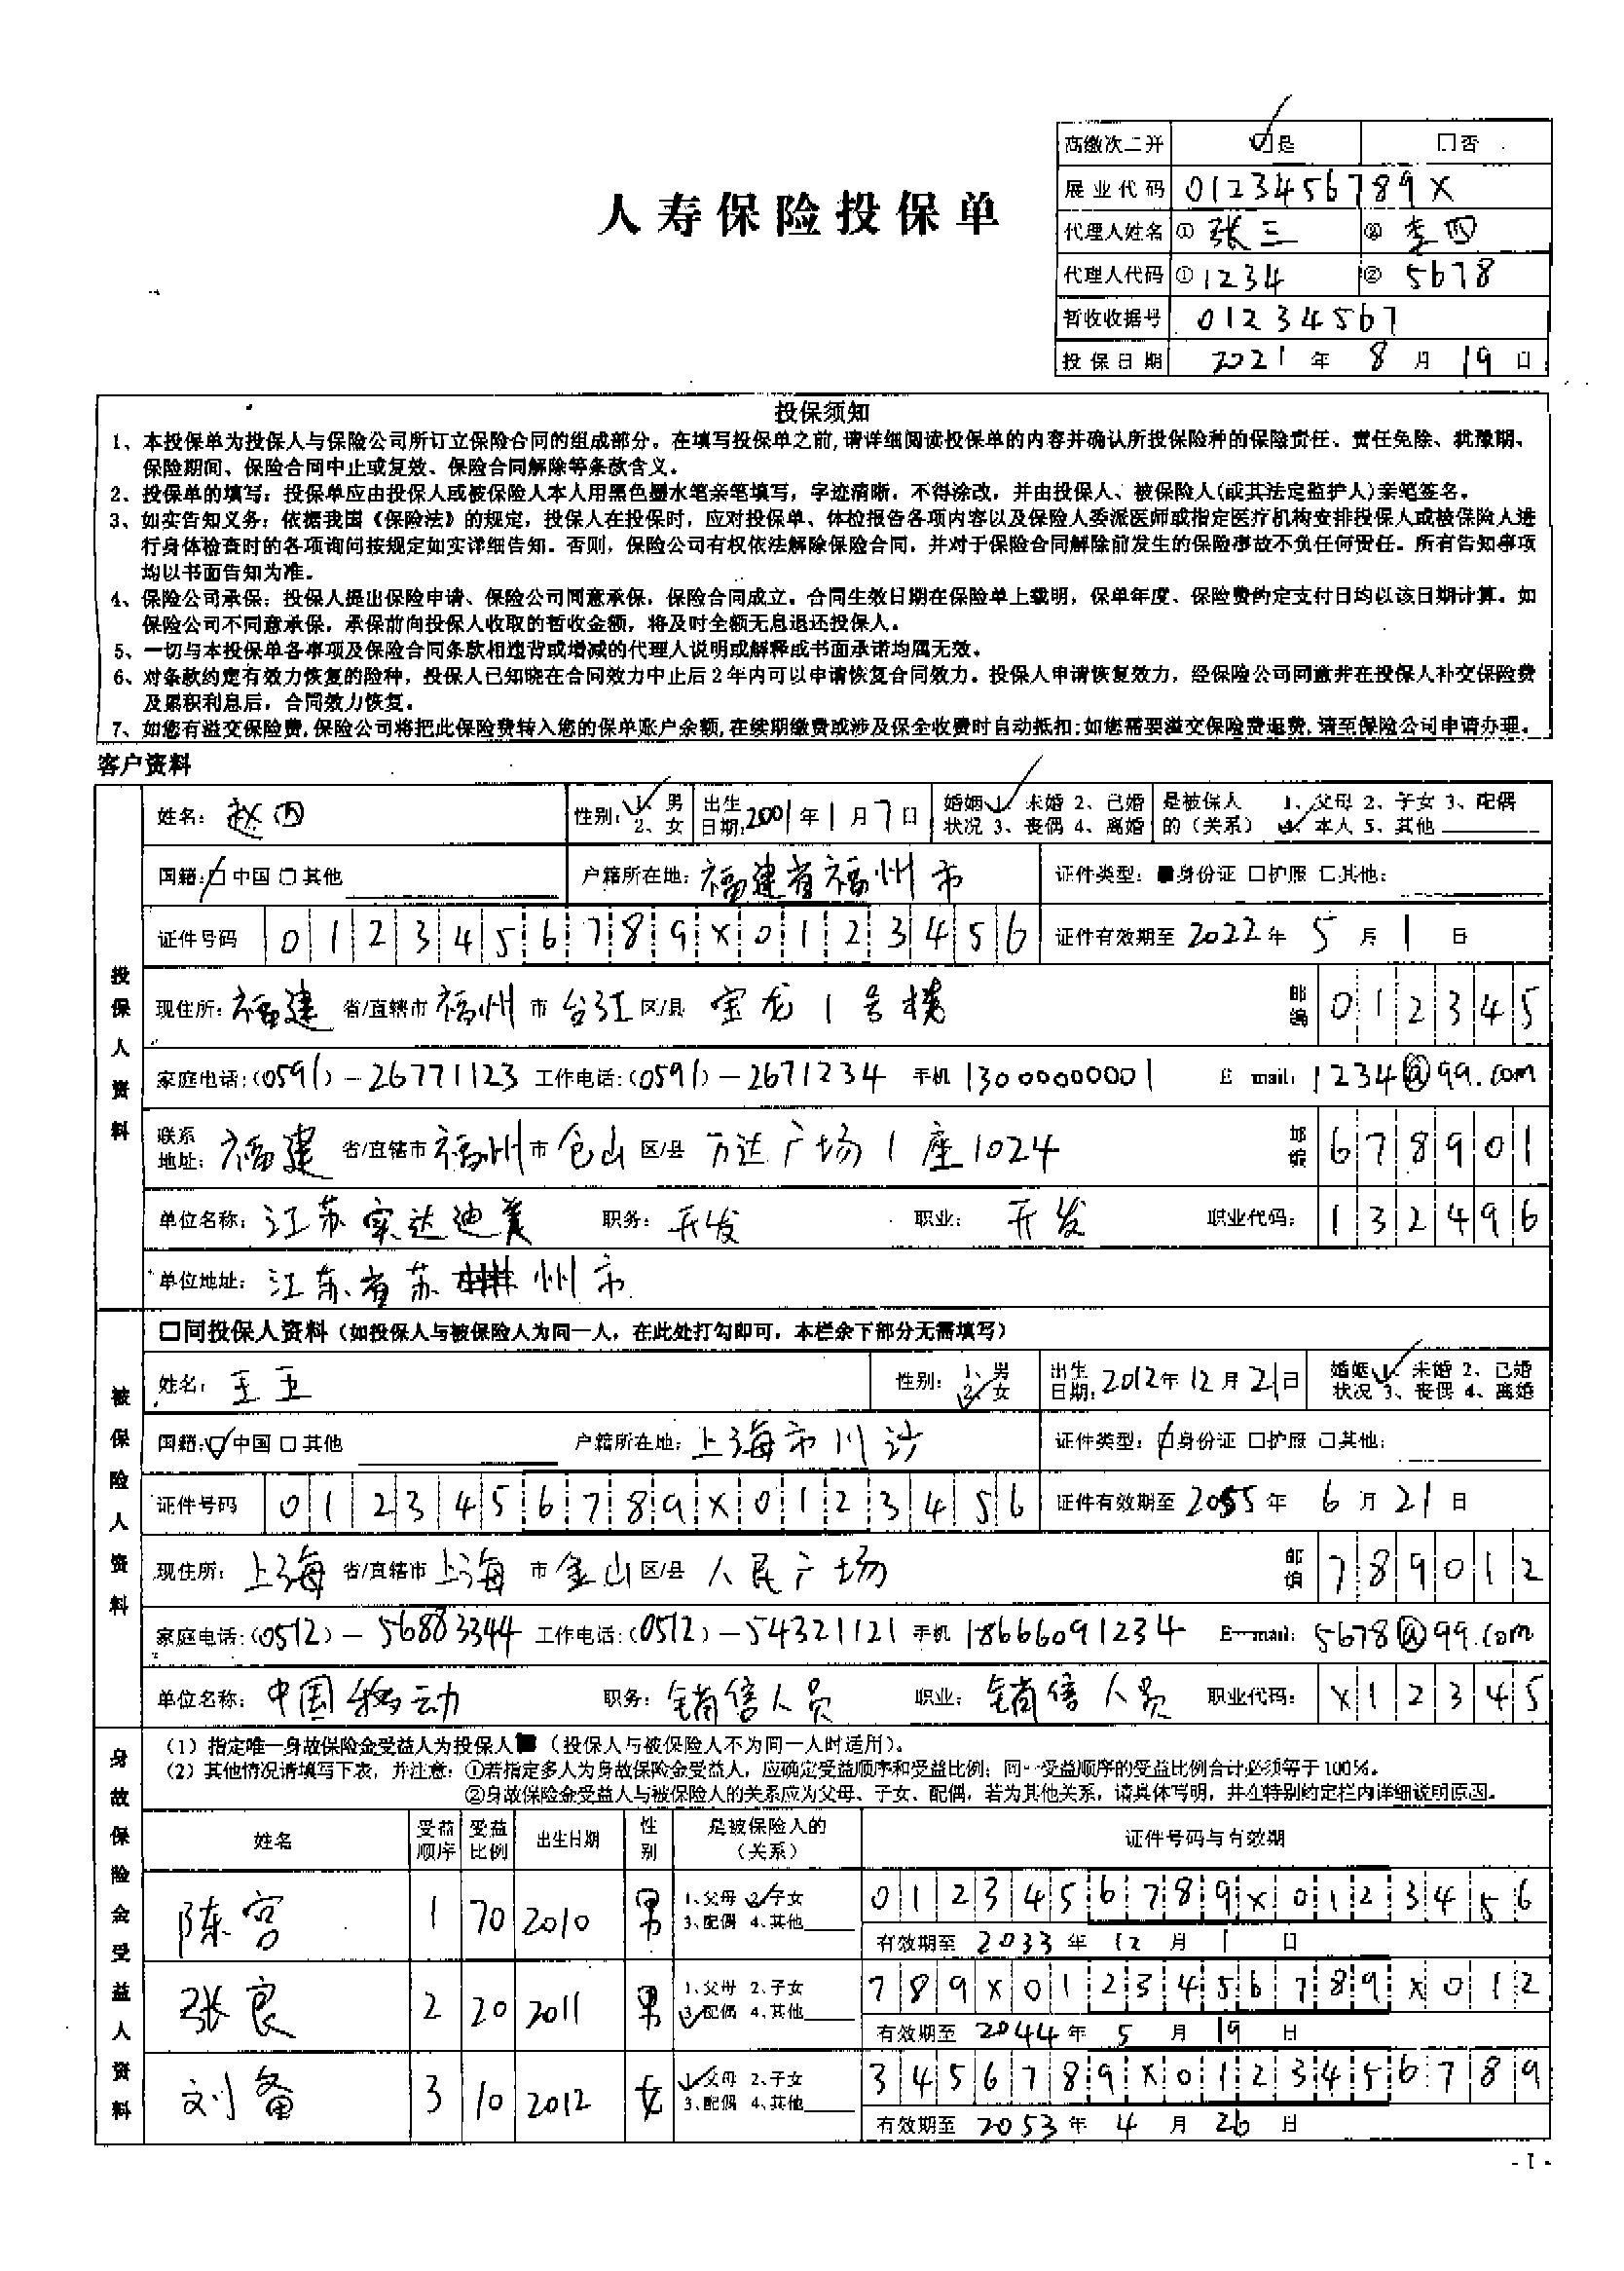 高缴次二开 ☑是 □否
人寿保险投保单
展业代码 0123456789X
代理人姓名 ① 张三 ② 李四
代理人代码 ① 1234 ② 5678
暂收收据号 01234567
投保日期 2021 年 8 月 19 日
投保须知
1、本投保单为投保人与保险公司所订立保险合同的组成部分。在填写投保单之前,请详细阅读投保单的内容并确认所投保险种的保险责任、责任免除、犹豫期、
保险期间、保险合同中止或复效、保险合同解除等条款含义。
2、投保单的填写：投保单应由投保人或被保险人本人用黑色墨水笔亲笔填写，字迹清晰，不得涂改，并由投保人、被保险人(或其法定监护人)亲笔签名。
3、如实告知义务：依据我国《保险法》的规定，投保人在投保时，应对投保单、体检报告各项内容以及保险人委派医师或指定医疗机构安排投保人或被保险人进
行身体检查时的各项询问按规定如实详细告知。否则，保险公司有权依法解除保险合同，并对于保险合同解除前发生的保险事故不负任何责任。所有告知事项
均以书面告知为准。
4、保险公司承保：投保人提出保险申请、保险公司同意承保，保险合同成立。合同生效日期在保险单上载明，保单年度、保险费约定支付日均以该日期计算。如
保险公司不同意承保，承保前向投保人收取的暂收金额，将及时全额无息退还投保人。
5、一切与本投保单各事项及保险合同条款相违背或增减的代理人说明或解释或书面承诺均属无效。
6、对条款约定有效力恢复的险种，投保人已知晓在合同效力中止后2年内可以申请恢复合同效力。投保人申请恢复效力，经保险公司同意并在投保人补交保险费
及累积利息后，合同效力恢复。
7、如您有溢交保险费,保险公司将把此保险费转入您的保单账户余额,在续期缴费或涉及保全收费时自动抵扣;如您需要溢交保险费退费,请至保险公司申请办理。
客户资料
投保人资料
姓名：赵四 性别：1、男 2、女 出生日期：2001年1月7日 婚姻状况 1、未婚 2、已婚 3、丧偶 4、离婚 是被保人的（关系） 1、父母 2、子女 3、配偶 4、本人 5、其他
国籍：□中国 □其他 户籍所在地：福建省福州市 证件类型：■身份证 □护照 □其他：
证件号码 0123456789X0123456 证件有效期至 2022年 5 月 1 日
现住所：福建 省/直辖市 福州 市 台江 区/县 宝龙1号楼 邮编 012345
家庭电话:(0591)－26771123 工作电话:(0591)－2671234 手机 13000000001 E mail: 1234@qq.com
联系地址：福建 省/直辖市 福州 市 仓山 区/县 万达广场1座1024 邮编 678901
单位名称：江苏实达迪美 职务：开发 职业：开发 职业代码：132496
单位地址：江苏省苏州市
被保险人资料
□同投保人资料（如投保人与被保险人为同一人，在此处打勾即可，本栏余下部分无需填写）
姓名：王五 性别：1、男 2、女 出生日期：2012年12月21日 婚姻状况 1、未婚 2、已婚 3、丧偶 4、离婚
国籍：☑中国 □其他 户籍所在地：上海市川沙 证件类型：□身份证 □护照 □其他：
证件号码 0123456789X0123456 证件有效期至 2055年 6 月 21 日
现住所：上海 省/直辖市 上海 市 金山 区/县 人民广场 邮编 789012
家庭电话:(0512)－56883344 工作电话:(0512)－54321121 手机 18666091234 E－mail: 5678@qq.com
单位名称：中国移动 职务：销售人员 职业：销售人员 职业代码：X12345
身故保险金受益人资料
（1）指定唯一身故保险金受益人为投保人■（投保人与被保险人不为同一人时适用）。
（2）其他情况请填写下表，并注意：①若指定多人为身故保险金受益人，应确定受益顺序和受益比例；同一受益顺序的受益比例合计必须等于100%。
②身故保险金受益人与被保险人的关系应为父母、子女、配偶，若为其他关系，请具体写明，并在特别约定栏内详细说明原因。
姓名 受益顺序 受益比例 出生日期 性别 是被保险人的（关系） 证件号码与有效期
陈宫 1 70 2010 男 1、父母 2、子女 3、配偶 4、其他 0123456789X0123456
有效期至 2033 年 12 月 1 日
张良 2 20 2011 男 1、父母 2、子女 3、配偶 4、其他 789X0123456789X012
有效期至 2044 年 5 月 19 日
刘备 3 10 2012 女 1、父母 2、子女 3、配偶 4、其他 3456789X0123456789
有效期至 2053 年 4 月 26 日
- 1 -